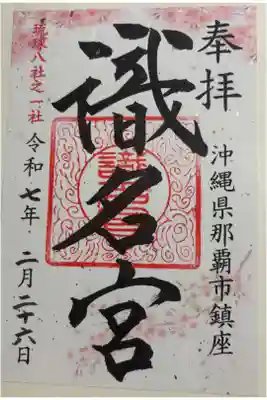 奉拝
沖縄県那覇市鎮座
識名宮
琉球八社之一社
令和七年
二月二十六日